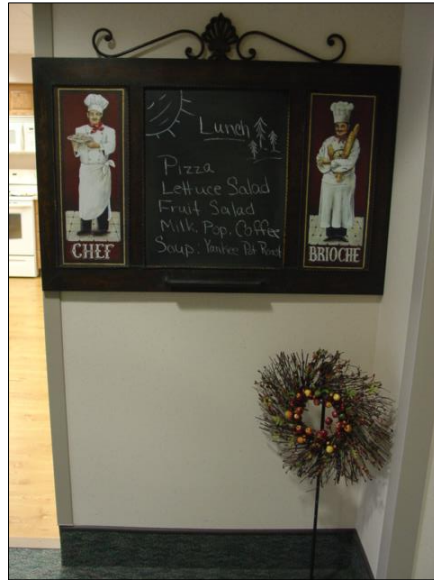 Lunch
Pizza
Lettuce Salad
Fruit Salad
Milk, Pop, Coffee
Soup: Yankee Pot Roast
CHEF
BRIOCHE